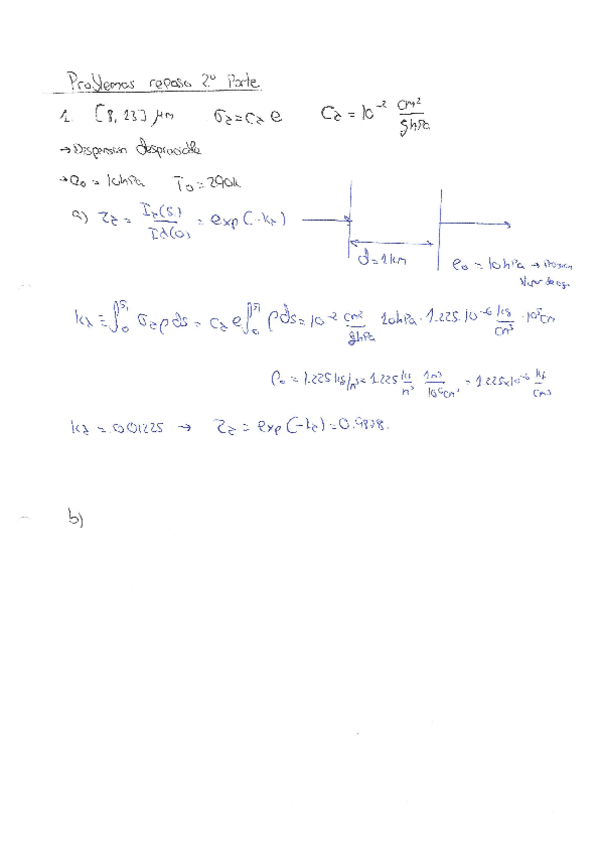 Problemas repaso 2º Parte
1. [8, 23] μm σλ = cλ e Cλ = 10⁻² cm²/g hPa
→ Dispersión despreciable
→ e₀ = 10 hPa T₀ = 290k
a) τλ = Iλ(S₁)/Iλ(0) = exp(-kλ)
d = 1 km
e₀ = 10 hPa → Presión
vapor de
kλ = ∫₀^S₁ σλ ρ ds = cλ e ∫₀^S₁ ρ ds = 10⁻² cm²/g hPa 10 hPa · 1.225 · 10⁻⁶ kg/cm³ · 10⁵ cm
ρ₀ = 1.225 kg/m³ = 1.225 kg/m³ 1m³/10⁶cm³ = 1.225x10⁻⁶ kg/cm³
kλ = 0.01225 → τλ = exp(-kλ) = 0.9878.
b)